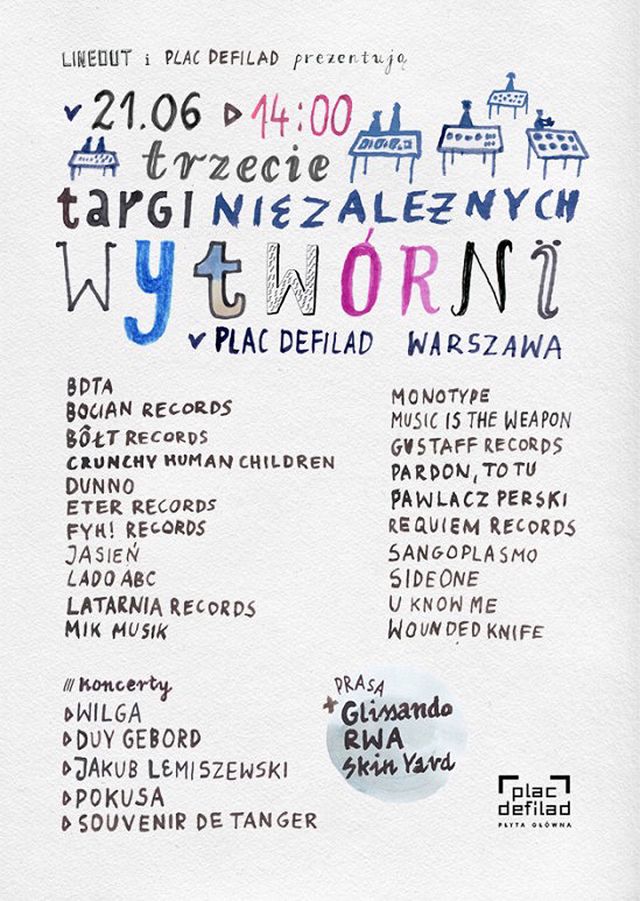 LINEOUT i PLAC DEFILAD prezentują
21.06 14:00
trzecie
targi NIEZALEŻNYCH
WYTWÓRNI
PLAC DEFILAD WARSZAWA
BDTA
BOCIAN RECORDS
BÔŁT RECORDS
CRUNCHY HUMAN CHILDREN
DUNNO
ETER RECORDS
FYH! RECORDS
JASIEŃ
LADO ABC
LATARNIA RECORDS
MIK MUSIK
MONOTYPE
MUSIC IS THE WEAPON
GUSTAFF RECORDS
PARDON, TO TU
PAWLACZ PERSKI
REQUIEM RECORDS
SANGOPLASMO
SIDEONE
U KNOW ME
WOUNDED KNIFE
/// Koncerty
WILGA
DUY GEBORD
JAKUB LEMISZEWSKI
POKUSA
SOUVENIR DE TANGER
PRASA
+ Glissando
RWA
Skin Yard
plac
defilad
PŁYTA GŁÓWNA